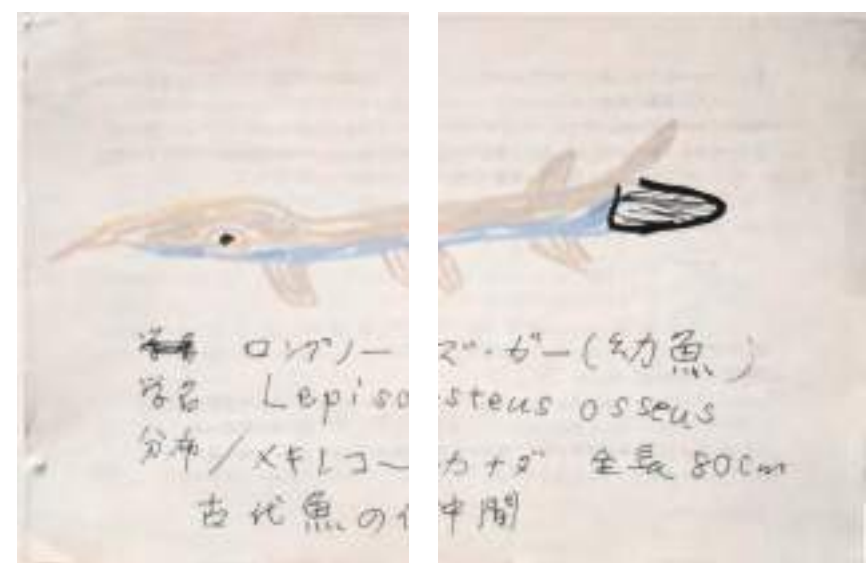 ロングノーズ・ガー(幼魚)
学名 Lepisosteus osseus
分布/メキシコ〜カナダ 全長 80cm
古代魚の仲間